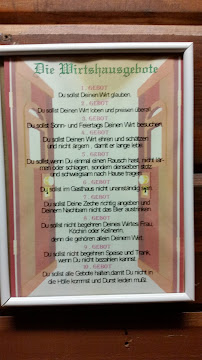 Die Wirtshausgebote
1. GEBOT
Du sollst Deinen Wirt glauben.
2. GEBOT
Du sollst Deinen Wirt loben und preisen überall.
3. GEBOT
Du sollst Sonn- und Feiertags Deinen Wirt besuchen.
4. GEBOT
Du sollst Deinen Wirt ehren und schätzen
und nicht ärgern, damit er lange lebt.
5. GEBOT
Du sollst, wenn Du einmal einen Rausch hast, nicht lär-
men oder schlagen, sondern denselben stolz
und schweigsam nach Hause tragen.
6. GEBOT
Du sollst im Gasthaus nicht unanständig sein.
7. GEBOT
Du sollst Deine Zeche richtig angeben und
Deinem Nachbarn nicht das Bier austrinken.
8. GEBOT
Du sollst nicht begehren Deines Wirtes Frau,
Köchin oder Kellnerin,
denn die gehören allen Deinem Wirt.
9. GEBOT
Du sollst nicht begehren Speise und Trank,
wenn Du nicht bezahlen kannst.
10. GEBOT
Du sollst alle Gebote halten, damit Du nicht in
die Hölle kommst und Durst leiden mußt.